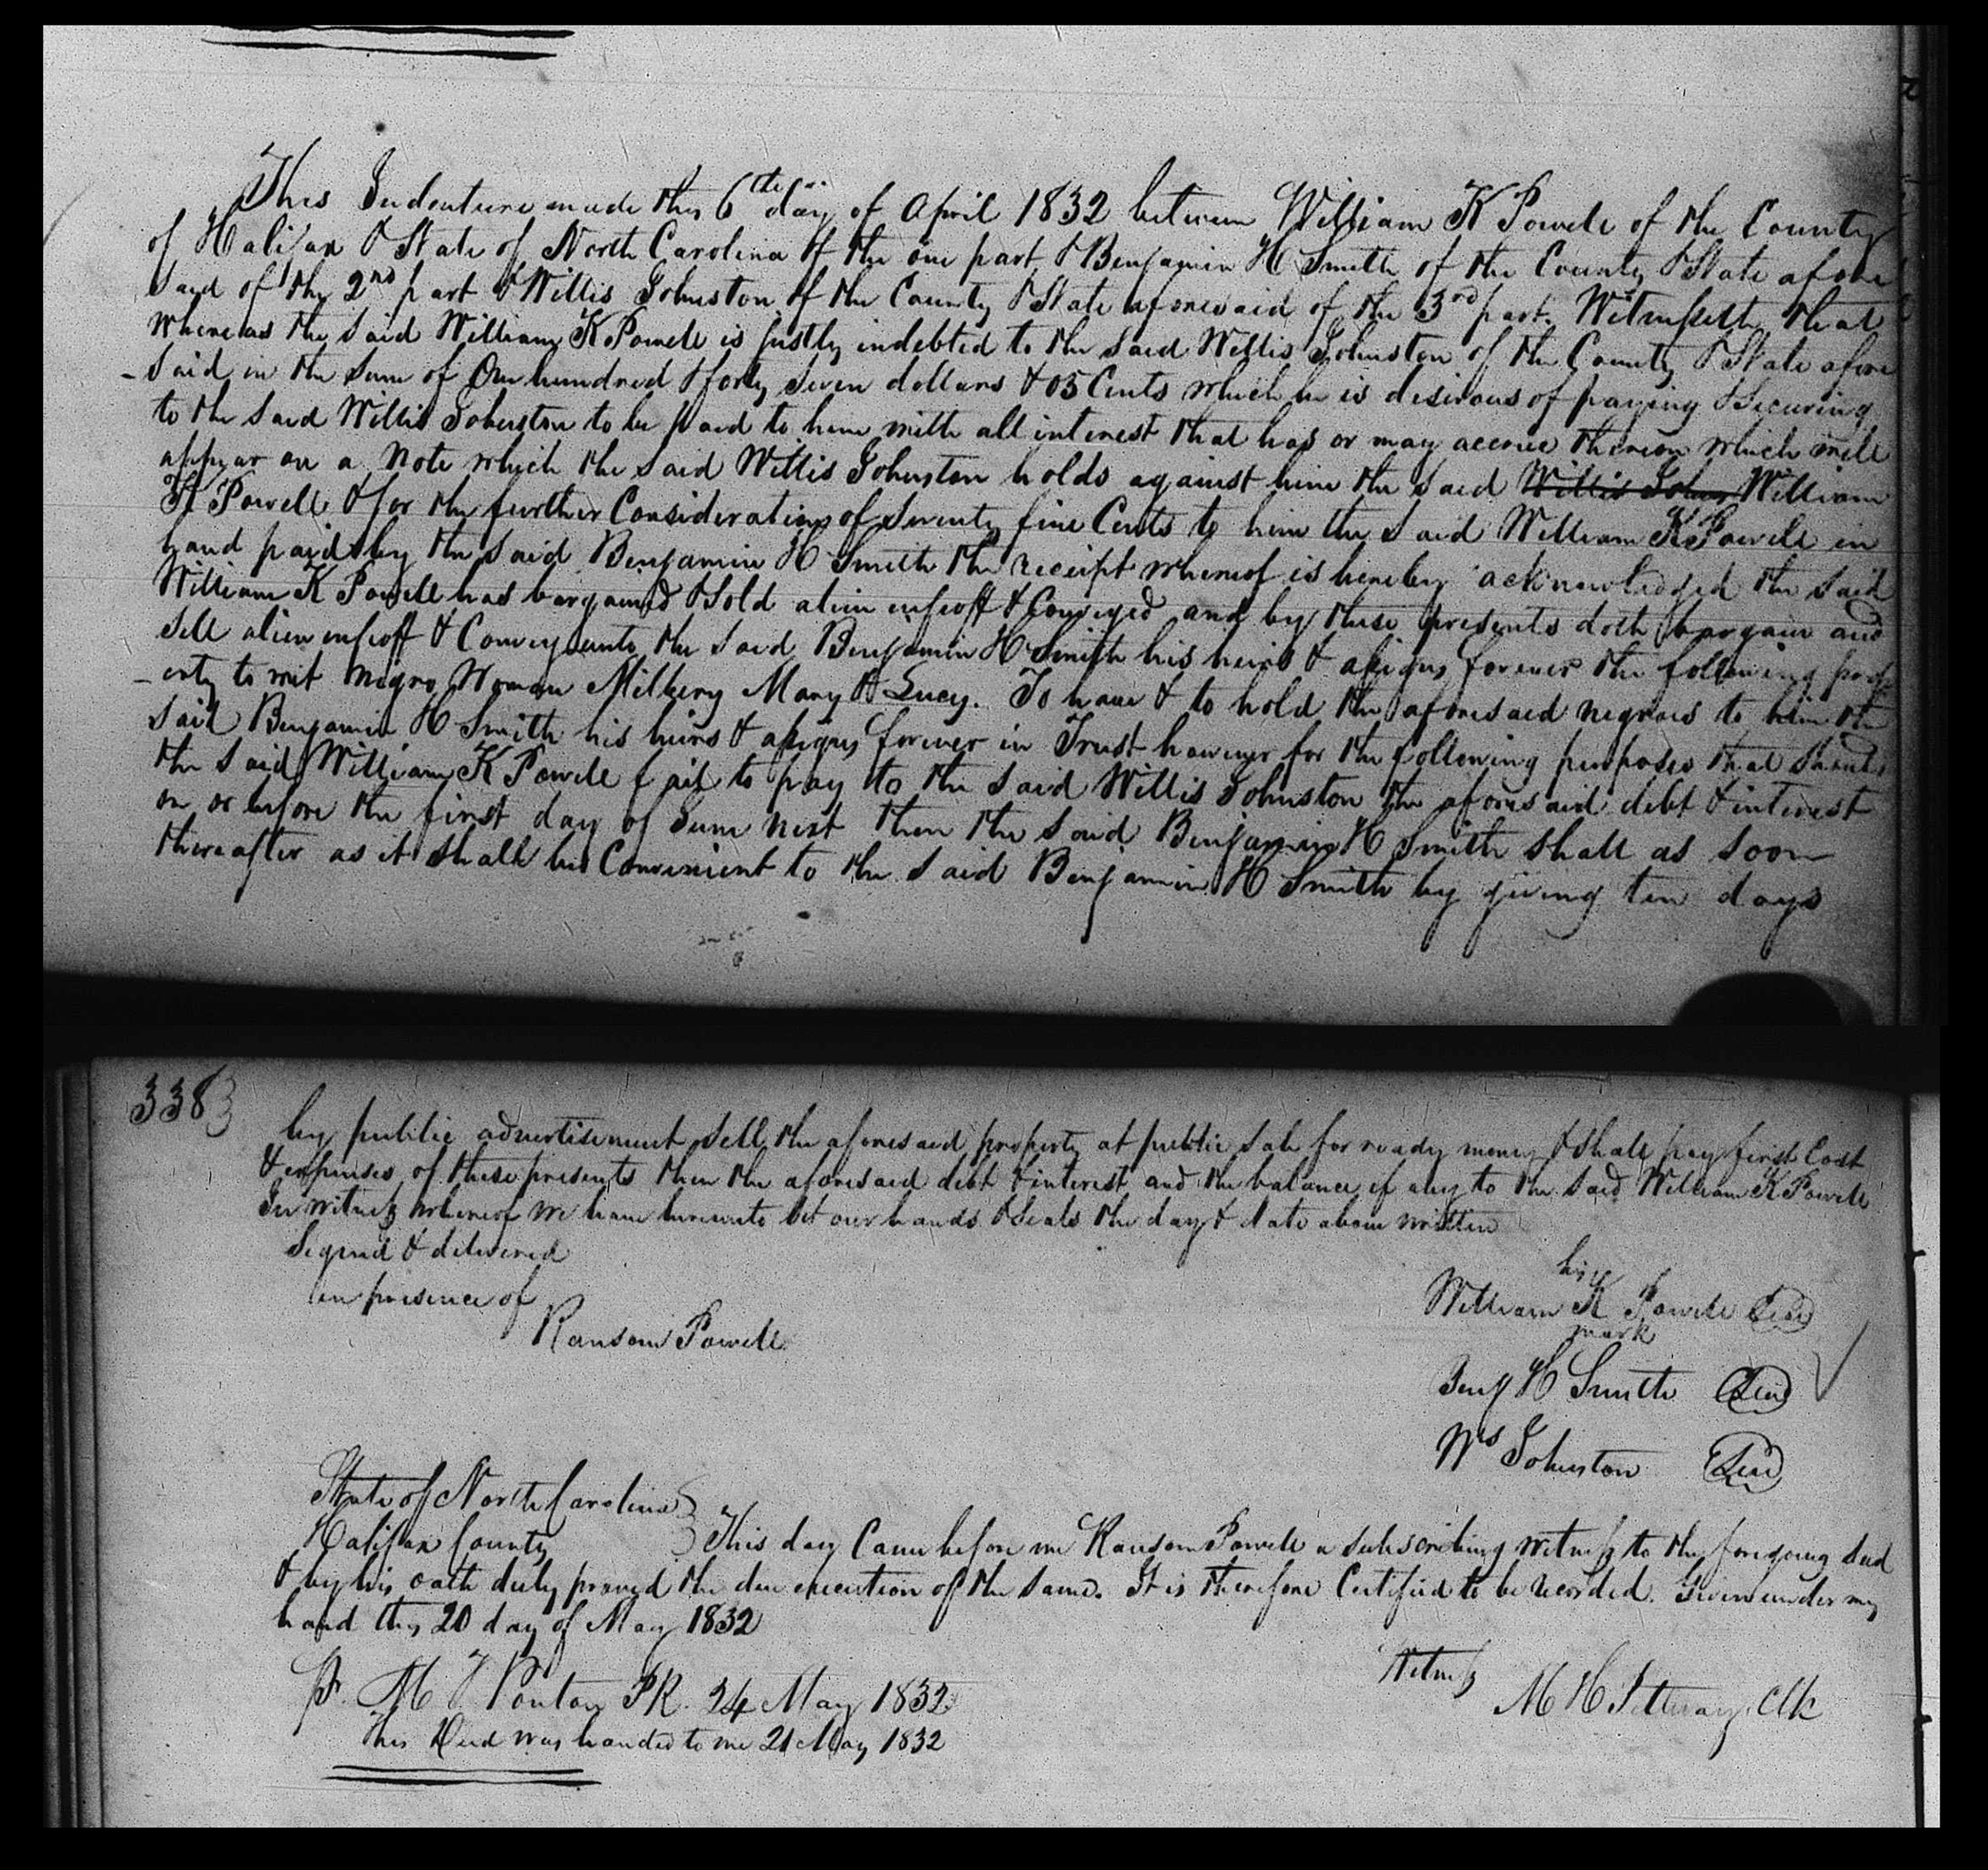 This Indenture made this 6th day of April 1832 between William K Powell of the County
of Halifax & State of North Carolina of the one part & Benjamin H Smith of the County & State afore
said of the 2nd part & Willis Johnston of the County & State aforesaid of the 3rd part. Witnesseth that
whereas the said William K Powell is justly indebted to the said Willis Johnston of the County & State afore
- said in the sum of One hundred & forty seven dollars & 05 Cents which he is desirous of paying & Securing
to the said Willis Johnston to be paid to him with all interest that has or may accrue thereon which will
appear on a note which the said Willis Johnston holds against him the said Willis Johns William
K Powell & for the further Consideration of Seventy five Cents to him the said William K Powell in
hand paid by the said Benjamin H Smith the receipt whereof is hereby acknowledged the said
William K Powell has bargained & Sold alien enfeoff & Conveyed and by these presents doth bargain and
sell alien enfeoff & Convey unto the said Benjamin H Smith his heirs & assigns forever the following prop
- erty to wit negro Woman Milbery Mary & Lucy. To have & to hold the aforesaid negroes to him the
said Benjamin H Smith his heirs & assigns forever in Trust however for the following purposes that should
the said William K Powell fail to pay to the said Willis Johnston the aforesaid debt & interest
on or before the first day of June next then the said Benjamin H Smith shall as soon
thereafter as it shall be Convenient to the said Benjamin H Smith by giving ten days
338
by public advertisement sell the aforesaid property at public sale for ready money & shall pay first Cost
& expenses of these presents then the aforesaid debt & interest and the balance if any to the said William K Powell
In witness whereof we have hereunto set our hands & Seals the day & date above written
Signed & delivered
in presence of
Ransom Powell
his
William K Powell Seal
mark
Benj H Smith Seal
Ws Johnston Seal
State of North Carolina
Halifax County
This day Came before me Ransom Powell a subscribing witness to the foregoing deed
& by his oath duly proved the due execution of the same. It is therefore Certified to be recorded. Given under my
hand this 20 day of May 1832
Witness
M H Pettway Clk
M T Ponton PR. 24 May 1832
This Deed was handed to me 21 May 1832